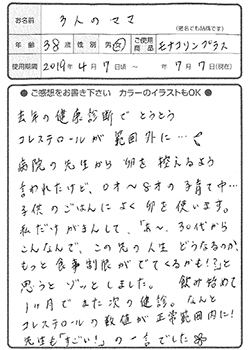 お名前 3人のママ
(匿名でもOKです)
年齢 38歳 性別 男・女 ご使用商品 モナコリンプラス
使用期間 2019年4月7日頃 ～ 年7月7日(現在)
●ご感想をお書き下さい カラーのイラストもOK●
去年の健康診断でとうとう
コレステロールが範囲外に…
病院の先生から卵を控えるよう
言われたけど、0才～8才の子育て中…
子供のごはんによく卵を使います。
私だけがまんして、「あ～、30代から
こんなんで、この先の人生どうなるのか、
もっと食事制限がでてくるかも!?」と
思うとゾッとしました。 飲み始めて
1ヶ月でまた次の健診。なんと
コレステロールの数値が正常範囲内に!
先生も「すごい!」の一言でした